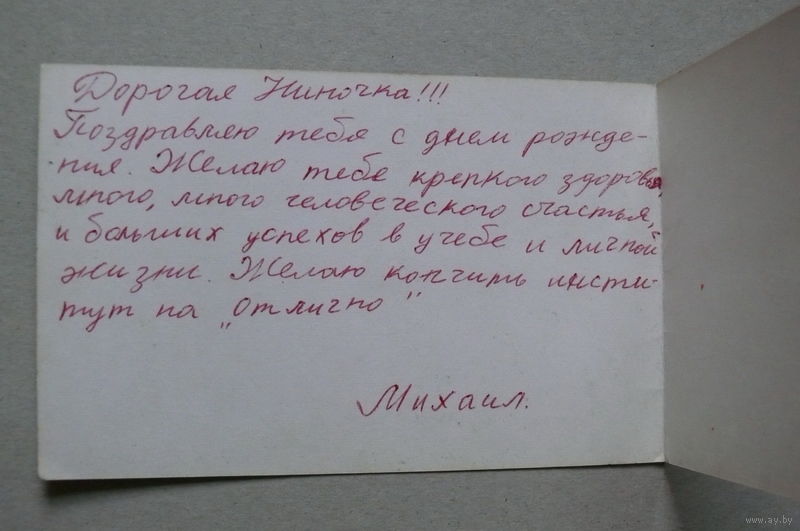 Дорогая Ниночка!!!
Поздравляю тебя с днем рожде-
ния. Желаю тебе крепкого здоровья,
много, много человеческого счастья,
и больших успехов в учебе и личной
жизни. Желаю кончить инсти-
тут на „отлично"
Михаил.
www.ay.by